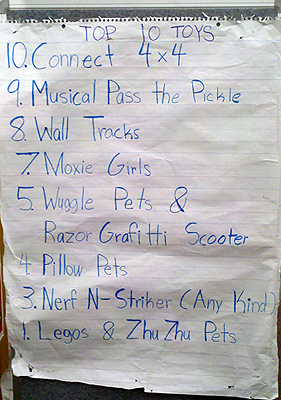 TOP 10 TOYS
10. Connect 4x4
9. Musical Pass the Pickle
8. Wall Tracks
7. Moxie Girls
5. Wuggle Pets &
Razor Grafitti Scooter
4. Pillow Pets
3. Nerf N-Striker (Any Kind)
1. Legos & ZhuZhu Pets